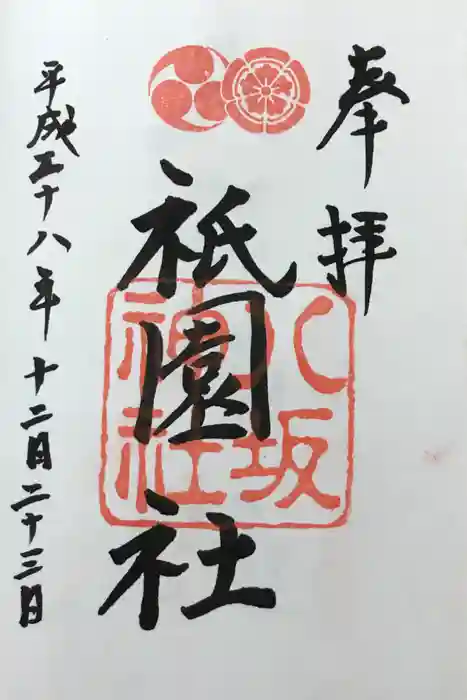 奉拝
祇園社
八坂
神社
平成二十八年十二月二十三日